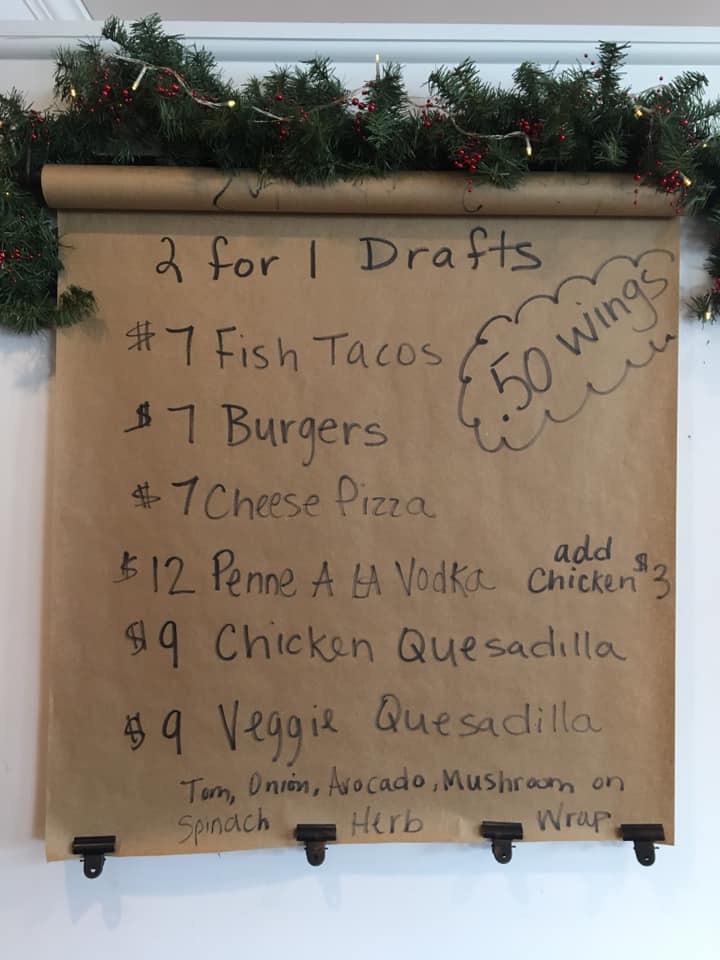 2 for 1 Drafts
.50 wings
$7 Fish Tacos
$7 Burgers
$7 Cheese Pizza
$12 Penne A LA Vodka add Chicken $3
$9 Chicken Quesadilla
$9 Veggie Quesadilla
Tom, Onion, Avocado, Mushroom on
Spinach Herb Wrap